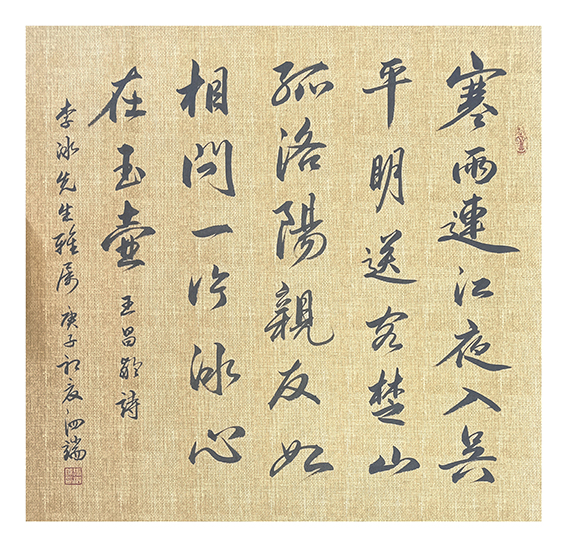 寒雨連江夜入吳
平明送客楚山
孤洛陽親友如
相問一片冰心
在玉壺
王昌齡詩
李冰先生雅屬 庚子初夏 泗端